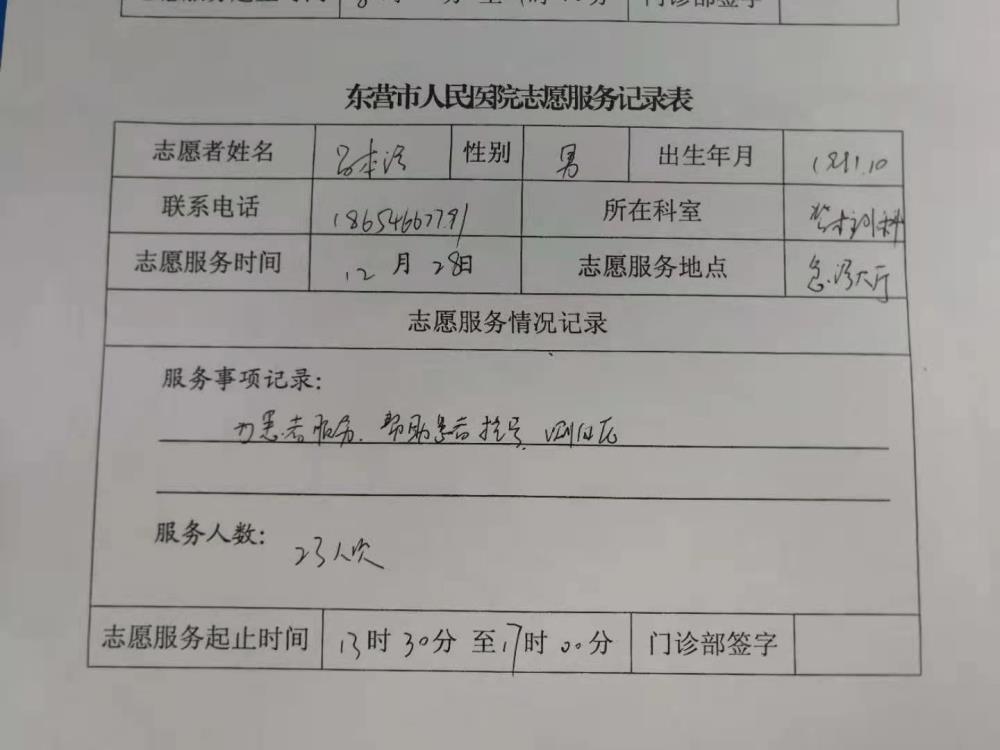 东营市人民医院志愿服务记录表
志愿者姓名 吕本 性别 男 出生年月
联系电话 18654667791 所在科室
志愿服务时间 12月28日 志愿服务地点 急诊大厅
志愿服务情况记录
服务事项记录:
为患者服务、帮助患者挂号、测血压
服务人数: 23人次
志愿服务起止时间 13时30分至17时00分 门诊部签字